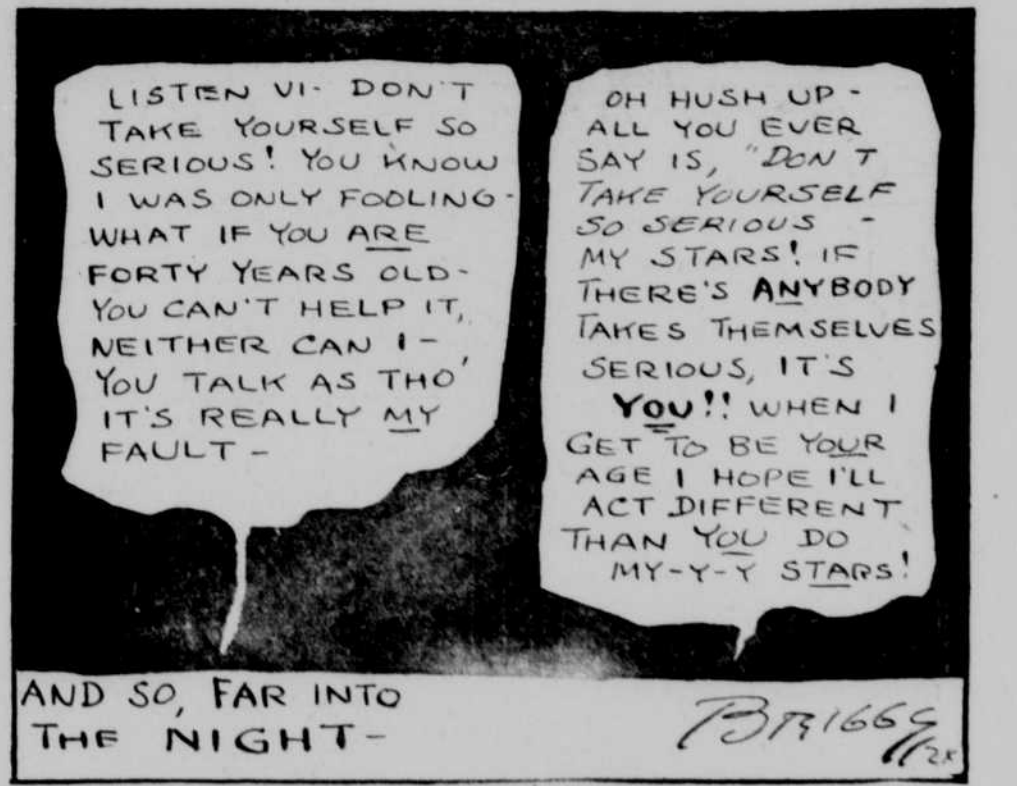 LISTEN VI- DON'T
TAKE YOURSELF SO
SERIOUS! YOU KNOW
I WAS ONLY FOOLING-
WHAT IF YOU ARE
FORTY YEARS OLD-
YOU CAN'T HELP IT,
NEITHER CAN I-
YOU TALK AS THO'
IT'S REALLY MY
FAULT-
OH HUSH UP-
ALL YOU EVER
SAY IS, "DON'T
TAKE YOURSELF
SO SERIOUS -
MY STARS! IF
THERE'S ANYBODY
TAKES THEMSELVES
SERIOUS, IT'S
YOU!! WHEN I
GET TO BE YOUR
AGE I HOPE I'LL
ACT DIFFERENT
THAN YOU DO
MY-Y-Y STARS!
AND SO, FAR INTO
THE NIGHT-
BRIGGS